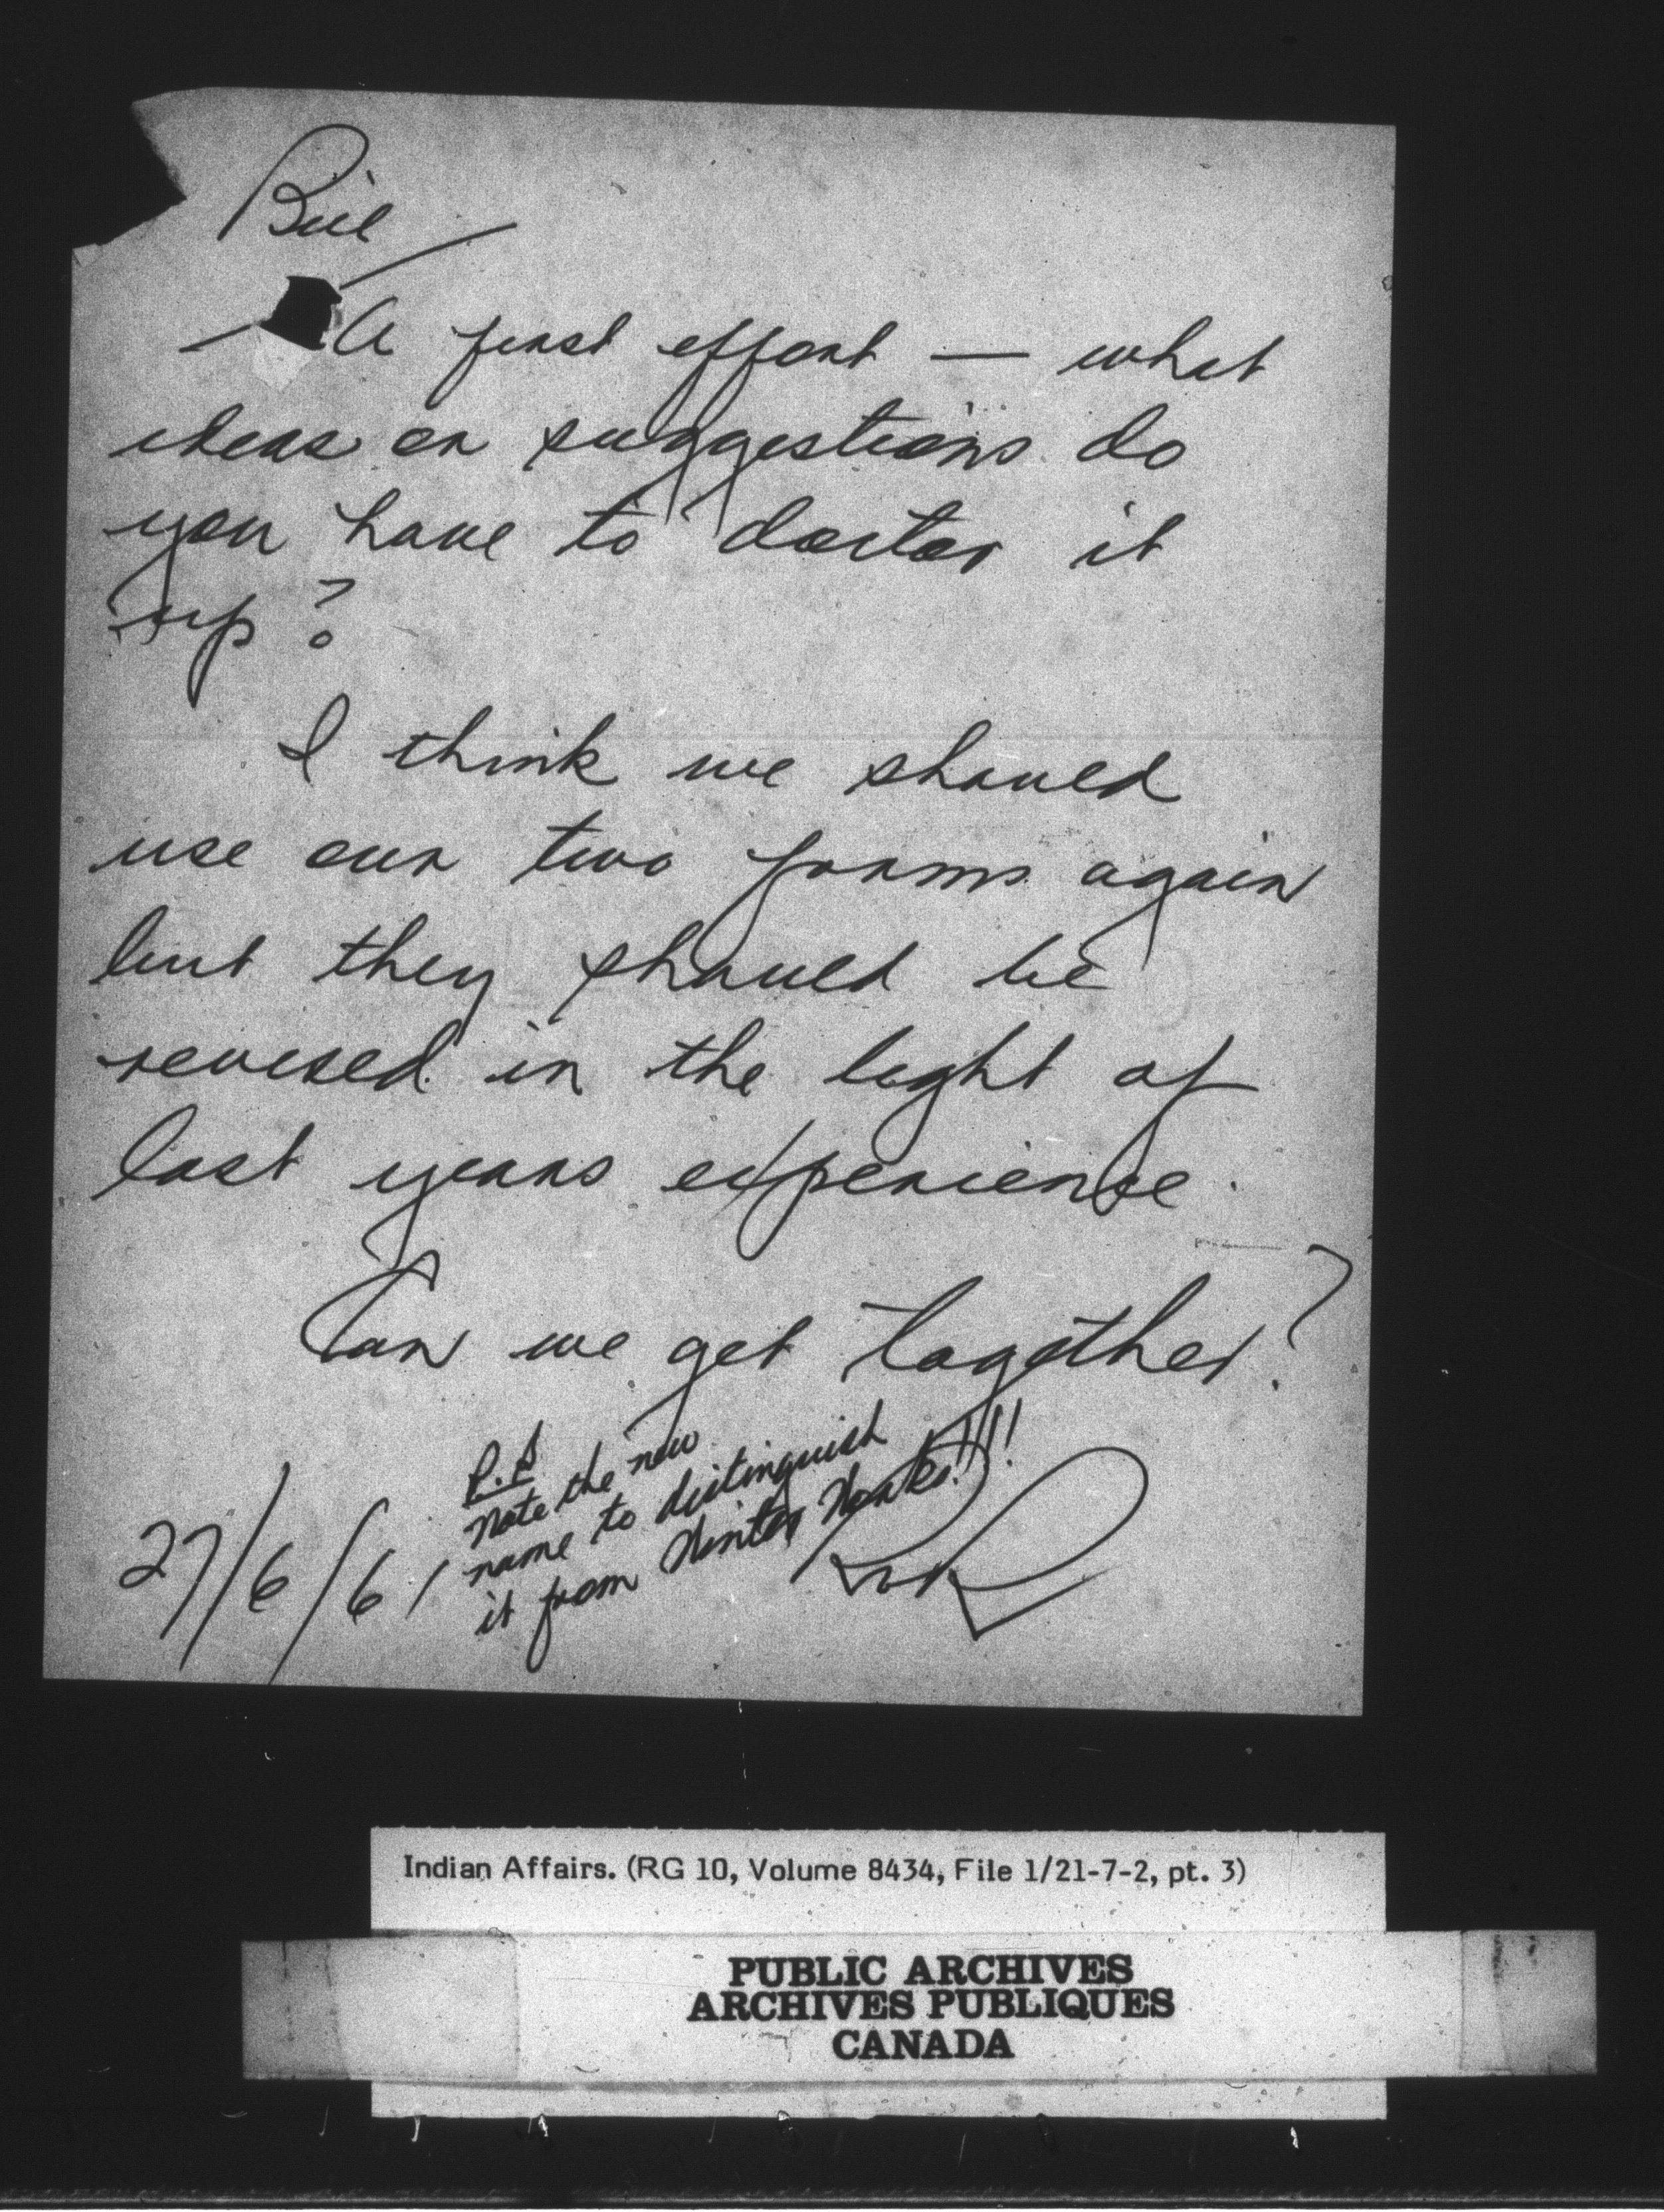 Bill
A first effort — what
ideas or suggestions do
you have to doctor it
up?
I think we should
use our two forms again
but they should be
revised in the light of
last years experience.
Can we get together?
P.S
Note the new
name to distinguish
it from Winter Works!!!!
27/6/61
Indian Affairs. (RG 10, Volume 8434, File 1/21-7-2, pt. 3)
PUBLIC ARCHIVES
ARCHIVES PUBLIQUES
CANADA